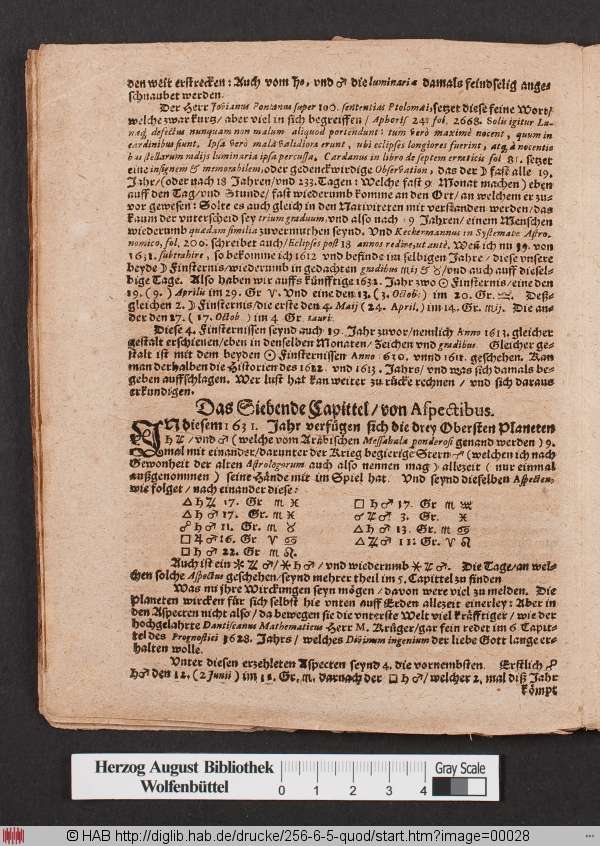 den weit erstrecken: Auch vom ♄, und ♂ die luminaria damals feindselig ange-
schnaubet werden.
Der Herr Jovianus Pontanus super 100. sententias Ptolomæi, setzet diese feine Wort/
welche zwar kurtz/ aber viel in sich begreiffen/ Aphoris. 241 fol. 2668. Solis igitur Lu-
næq; defectus nunquam non malum aliquod portendunt: tum verò maximè nocent, quum in
cardinibus fiunt. Ipsa verò mala validiora erunt, ubi eclipses longiores fuerint, atq; à nocentib
bus stellarum radijs luminaria ipsa percussa. Cardanus in libro de septem erraticis fol 81. setzet
eine insignem & memorabilem, oder gedenckwirdige Observation, das der ☽ fast alle 19.
Jahr/ (oder nach 18 Jahren/ und 233. Tagen: Welche fast 9 Monat machen) eben
auff den Tag/ und Stunde/ fast wiederumb komme an den Ort/ an welchem er zu-
vor gewesen: Solte es auch gleich in den Nativiteten mit verstanden werden/ das
kaum der unterscheid sey trium graduum, und also nach 19 Jahren/ einem Menschen
wiederumb quædam similia zuvermuthen seynd. Und Keckermannus in Systemate Astro-
nomico, fol. 200. schreiber auch/ Eclipses post 18 annos redire, ut antè. Weñ ich nu 19. von
1631. subtrahire, so bekomme ich 1612 und befinde im selbigen Jahre/ diese unsere
beyde ☽ Finsternis/ wiederumb in gedachten gradibus ♏ & ♉/ und auch auff diesel-
bige Tage. Also haben wir auffs künfftige 1632. Jahr zwo ☉ Finsternis/ eine den
19. (9.) Aprilis im 29. Gr. ♈. Und eine den 13. (3. Octob:) im 20. Gr. ♎. Deß-
gleichen 2. ☽ Finsternis/ die erste den 4. Maij (24. April.) im 14. Gr. ♏. Die an-
der den 27. (17. Octob.) im 4 Gr. tauri.
Diese 4. Finsternissen seynd auch 19. Jahr zuvor/ nemlich Anno 1613. gleicher
gestalt erschienen/ eben in denselben Monaten/ Zeichen und gradibus. Gleicher ge-
stalt ist mit dem beyden ☉ Finsternissen Anno 1610. unnd 1611. geschehen. Kan
man derhalben die Historien des 1612. und 1613. Jahrs/ und was sich damals be-
geben auffschlagen. Wer lust hat kan weiter zu rücke rechnen/ und sich daraus
erkundigen.
Das Siebende Capittel/ von Aspectibus.
IN diesem 1631. Jahr verfügen sich die drey Obersten Planeten
♄ ♃/ und ♂ (welche vom Arabischen Messahala ponderosi genand werden) 9.
mal mit einander/ darunter der Krieg begierige Stern ♂ (welchen ich nach
Gewonheit der alten Astrologorum auch also nennen mag) allezeit (nur einmal
außgenommen) seine Hände mit im Spiel hat. Und seynd dieselben Aspecten,
wie folget/ nach einander diese:
△ ♄ ♃ 17. Gr. ♏ ♓ □ ♄ ♂ 17. Gr ♏ ♒
△ ♄ ♂ 17. Gr. ♏ ♓ ☌ ♃ ♂ 3. Gr. ♓
☍ ♄ ♂ 11. Gr. ♏ ♉ △ ♄ ♂ 13. Gr. ♏ ♋
□ ♃ ♂ 16. Gr. ♈ ♋ △ ♃ ♂ 11: Gr. ♈ ♌
□ ♄ ♂ 22. Gr ♏ ♌
Auch ist ein ⚹ ♃ ♂/ ⚹ ♄ ♂/ und wiederumb ⚹ ♃ ♂. Die Tage/ an wel-
chen solche Aspectus geschehen/ seynd mehrer theil im 5. Capittel zu finden
Was nu ihre Wirckungen seyn mögen/ davon were viel zu melden. Die
Planeten wircken für sich selbst hie unten auff Erden allezeit einerley: Aber in
den Aspecten nicht also/ da bewegen sie die unterste Welt viel kräfftiger/ wie der
hochgelahrte Dantiscanus Mathematicus Herr M. Krüger/ gar fein redet im 6 Capit-
tel des Prognostici 1628. Jahrs/ welches Divinum ingenium der liebe Gott lange er-
halten wolle.
Unter diesen erzehleten Aspecten seynd 4. die vornembsten. Erstlich ☍
♄ ♂ den 12. (2 Junii) im 11. Gr. ♏. darnach der □ ♄ ♂/ welcher 2. mal diß Jahr
kömpt
Herzog August Bibliothek
Wolfenbüttel
0 1 2 3 4
Gray Scale
© HAB http://diglib.hab.de/drucke/256-6-5-quod/start.htm?image=00028